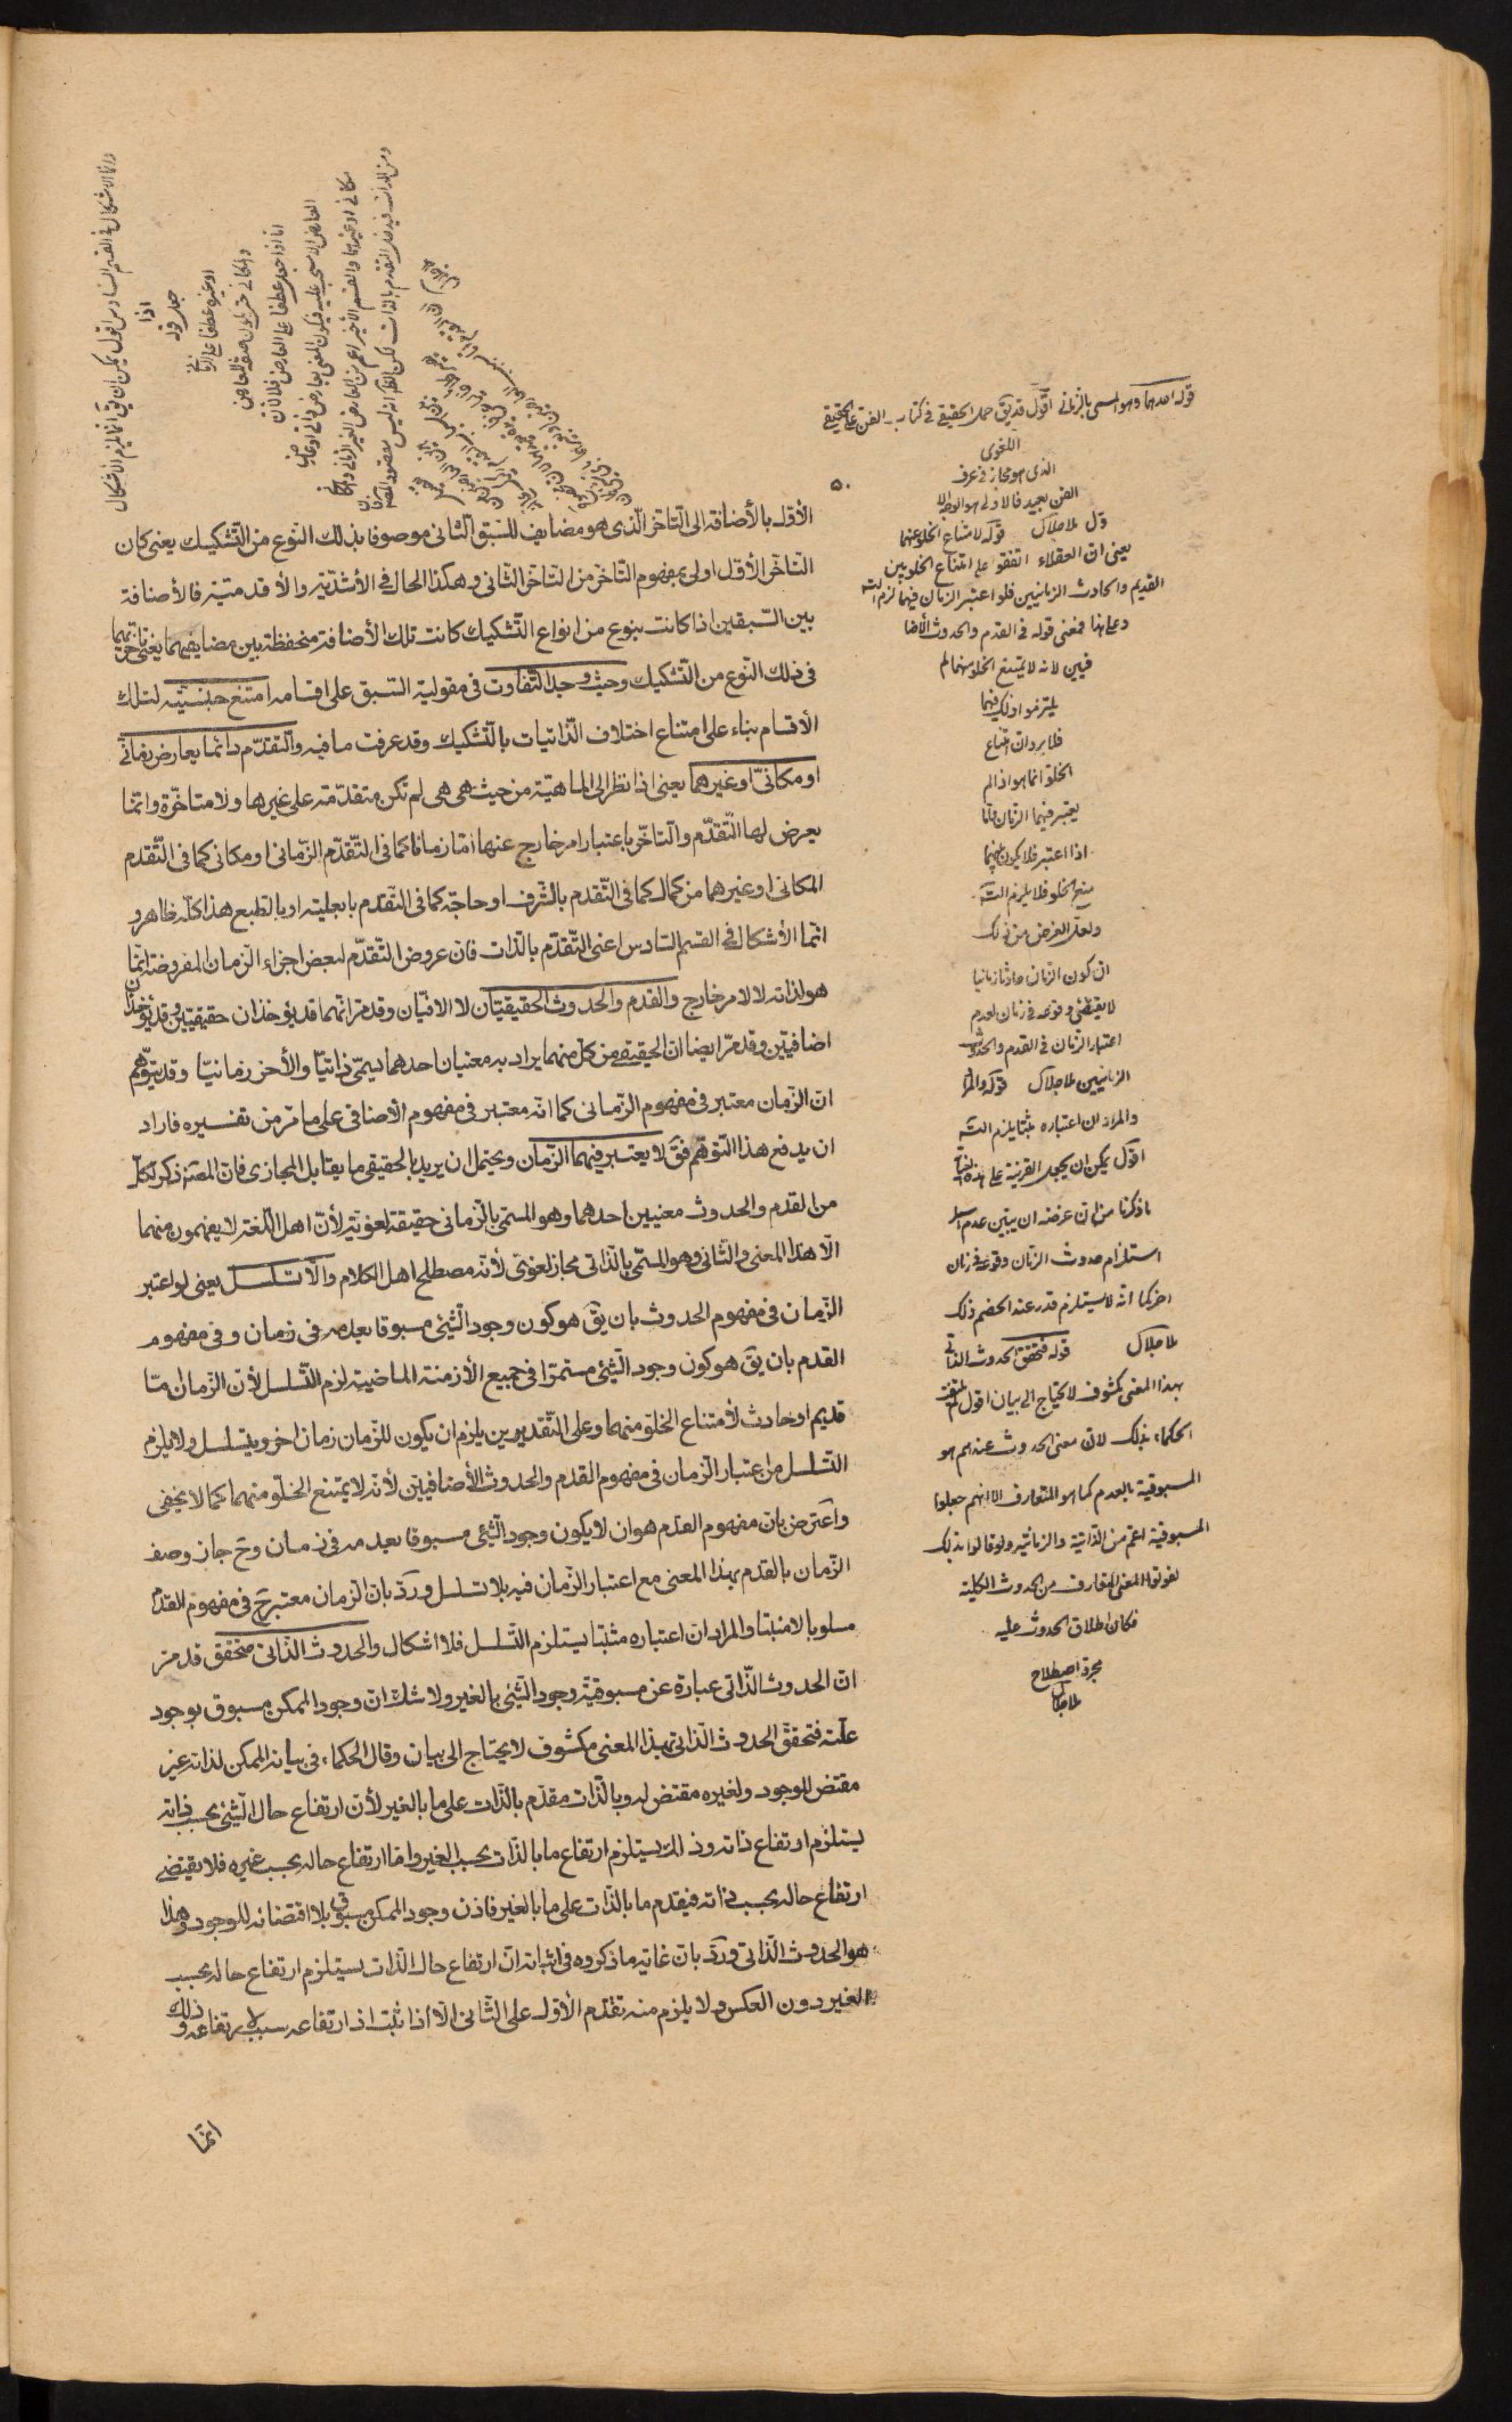 الأوّل بالأضافة الى التأخّر الّذى هو مضايف للسّبق الثّانى موصوفا بذلك النّوع من التّشكيك يعنى كان
التأخّر الأوّل اولى بمفهوم التّأخّر من التّأخّر الثّانى وهكذا الحال فى الأشدّيّة والأقدميّة فالأضافة
بين السّبقين اذا كانت بنوع من انواع التّشكيك كانت تلك الأضافة منحفظة بين مضايفيهما يعنى تأخّريهما
فى ذلك النّوع من التّشكيك وحيث وجد التّفاوت فى مقولية السّبق على اقسامه امتنع جنسيّته لتلك
الأقسام بناء على امتناع اختلاف الذّاتيات بالتّشكيك وقد عرفت ما فيه والتّقدّم دائما بعارض زمانىّ
او مكانىّ او غيرهما يعنى اذا نظر الى الماهيّة من حيث هى هى لم تكن متقدّمة على غيرها ولا متأخّرة وانّما
يعرض لها التّقدّم والتّأخّر باعتبار امر خارج عنها امّا زمانا كما فى التّقدّم الزّمانى او مكانى كما فى التّقدم
المكانى او غيرهما من كمال كما فى التّقدم بالشّرف او حاجة كما فى التّقدم بالعلّية او بالطّبع هذا كلّه ظاهر و
انّما الأشكال فى القسم السّادس اعنى التّقدّم بالذّات فان عروض التّقدّم لبعض اجزاء الزّمان المفروضة انّما
هو لذاته لا لامر خارج والقدم والحدوث الحقيقيّان لا الاضافيّان وقد مرّ انّهما قد يؤخذان حقيقيّين وقد يؤخذان
اضافيّين وقد مرّ ايضا ان الحقيقى من كلّ منهما يراد به معنيان احدهما يسمّى ذاتيّا والأخر زمانيّا وقد يتوهّم
ان الزّمان معتبر فى مفهوم الزّمانى كما انّه معتبر فى مفهوم الأضافى على ما مرّ من تفسيره فاراد
ان يدفع هذا التّوهّم فقَ لا يعتبر فيهما الزّمان ويحتمل ان يريد بالحقيقى ما يقابل المجازى فان المصَ ذكر لكلّ
من القدم والحدوث معنيين احدهما وهو المسمّى بالزّمانى حقيقة لغويّة لأنّ اهل اللّغة لا يفهمون منهما
الّا هذا المعنى والثّانى وهو المسمّى بالذّاتى مجاز لغوىّ لأنّه مصطلح اهل الكلام والّا تسلسل يعنى لو اعتبر
الزّمان فى مفهوم الحدوث بان يقَ هو كون وجود الشّئ مسبوقا بعدمه فى زمان وفى مفهوم
القدم بان يقَ هو كون وجود الشّئ مستمرّا فى جميع الأزمنة الماضية لزم التّسلسل لأنّ الزّمان امّا
قديم او حادث لأمتناع الخلوّ منهما وعلى التّقديرين يلزم ان يكون للزّمان زمان اخر ويتسلسل ولا يلزم
التّسلسل من اعتبار الزّمان فى مفهوم القدم والحدوث الأضافيّين لأنّه لا يمتنع الخلوّ منهما كما لا يخفى
واعترض بان مفهوم القدم هو ان لا يكون وجود الشّئ مسبوقا بعدمه فى زمان وحَ جاز وصف
الزّمان بالقدم بهذا المعنى مع اعتبار الزّمان فيه بلا تسلسل وردّ بان الزّمان معتبر حَ فى مفهوم القدم
مسلوبا لا مثبتا والمراد ان اعتباره مثبتا يستلزم التّسلسل فلا اشكال والحدوث الذّاتى متحقّق قد مرّ
انّ الحدوث الذّاتى عبارة عن مسبوقيّة وجود الشّئ بالغير ولا شكّ ان وجود الممكن مسبوق بوجود
علّته فتحقّق الحدوث الذّاتى بهذا المعنى مكشوف لا يحتاج الى بيان وقال الحكماء فى بيانه الممكن لذاته غير
مقتض للوجود ولغيره مقتض له وما بالذّات مقدّم بالذّات على ما بالغير لأنّ ارتفاع حال الشّئ بحسب ذاته
يستلزم ارتفاع ذاته وذلك يستلزم ارتفاع ما بالذّات بحسب الغير وامّا ارتفاع حاله بحسب غيره فلا يقتضى
ارتفاع حاله بحسب ذاته فيقدم ما بالذّات على ما بالغير فاذن وجود الممكن مسبوق بلا اقتضائه للوجود وهذا
هو الحدوث الذّاتى وردّ بان غاية ما ذكروه فى اثباته انّ ارتفاع حال الذّات يستلزم ارتفاع حاله بحسب
الغير دون العكس ولا يلزم منه تقدّم الأوّل على الثّانى الّا اذا ثبت ان ارتفاعه سبب لارتفاعه وذلك
انّما
قوله احدهما وهو المسمى بالزمانى اقول قد يقَ حمل الحقيقى فى كتاب الفن على الحقيقى
اللغوى
الذى هو مجاز فى عرف
الفن بعيد فالاولى هو الوجه الا
ول ملا جلال قوله لامتناع الخلو عنهما
يعنى ان العقلاء اتفقوا على امتناع الخلو بين
القديم والحادث الزمانيين فلو اعتبر الزمان فيهما لزم التسَ
وعلى هذا فمعنى قوله فى القدم والحدوث الأضا
فيين لانه لا يمتنع الخلو منهما لم
يلتزموا ذلك فيهما
فلا يرد ان امتناع
الخلو انما هو اذا لم
يعتبر فيهما الزمان وامّا
اذا اعتبر فلا يكون بينهما
منع الخلو فلا يلزم التسَ
ولعل الغرض من ذلك
ان كون الزمان حادثا زمانيا
لا يقتضى وقوعه فى زمان لعدم
اعتبار الزمان فى القدم والحدوث
الزمانيين ملا جلال قوله والمرا
والمراد ان اعتباره مثبتا يلزم التسَ
اقول يمكن ان يجعل القرينة على هذه
ما ذكرنا من ان غرضه ان يبين عدم
استلزام حدوث الزمان وقوعه فى زمان
اخر كما انه لا يستلزم قدمه عند الخصم ذلك
ملا جلال قوله فتحقق الحدوث الذاتى
بهذا المعنى مكشوف لا يحتاج الى بيان اقول لم
الحكماء بذلك لان معنى الحدوث عندهم هو
المسبوقية بالعدم كما هو المتعارف الا انهم جعلوا
المسبوقية اعم من الذاتية والزمانية ولو قالوا بذلك
لفوتوا المعنى المتعارف من الحدوث بالكلية
فكان اطلاق الحدوث عليه
مجرد اصطلاح
ملا جلال
وانما الاشكال فى القسم السادس اقول يمكن ان يقَ انما يلزم الاشكال
اذا
جعل قوله
او غيره عطفا على الزمانى
والمكانى حتى يكون صفة للعارض
اما اذا جعل عطفا على العارض فلا